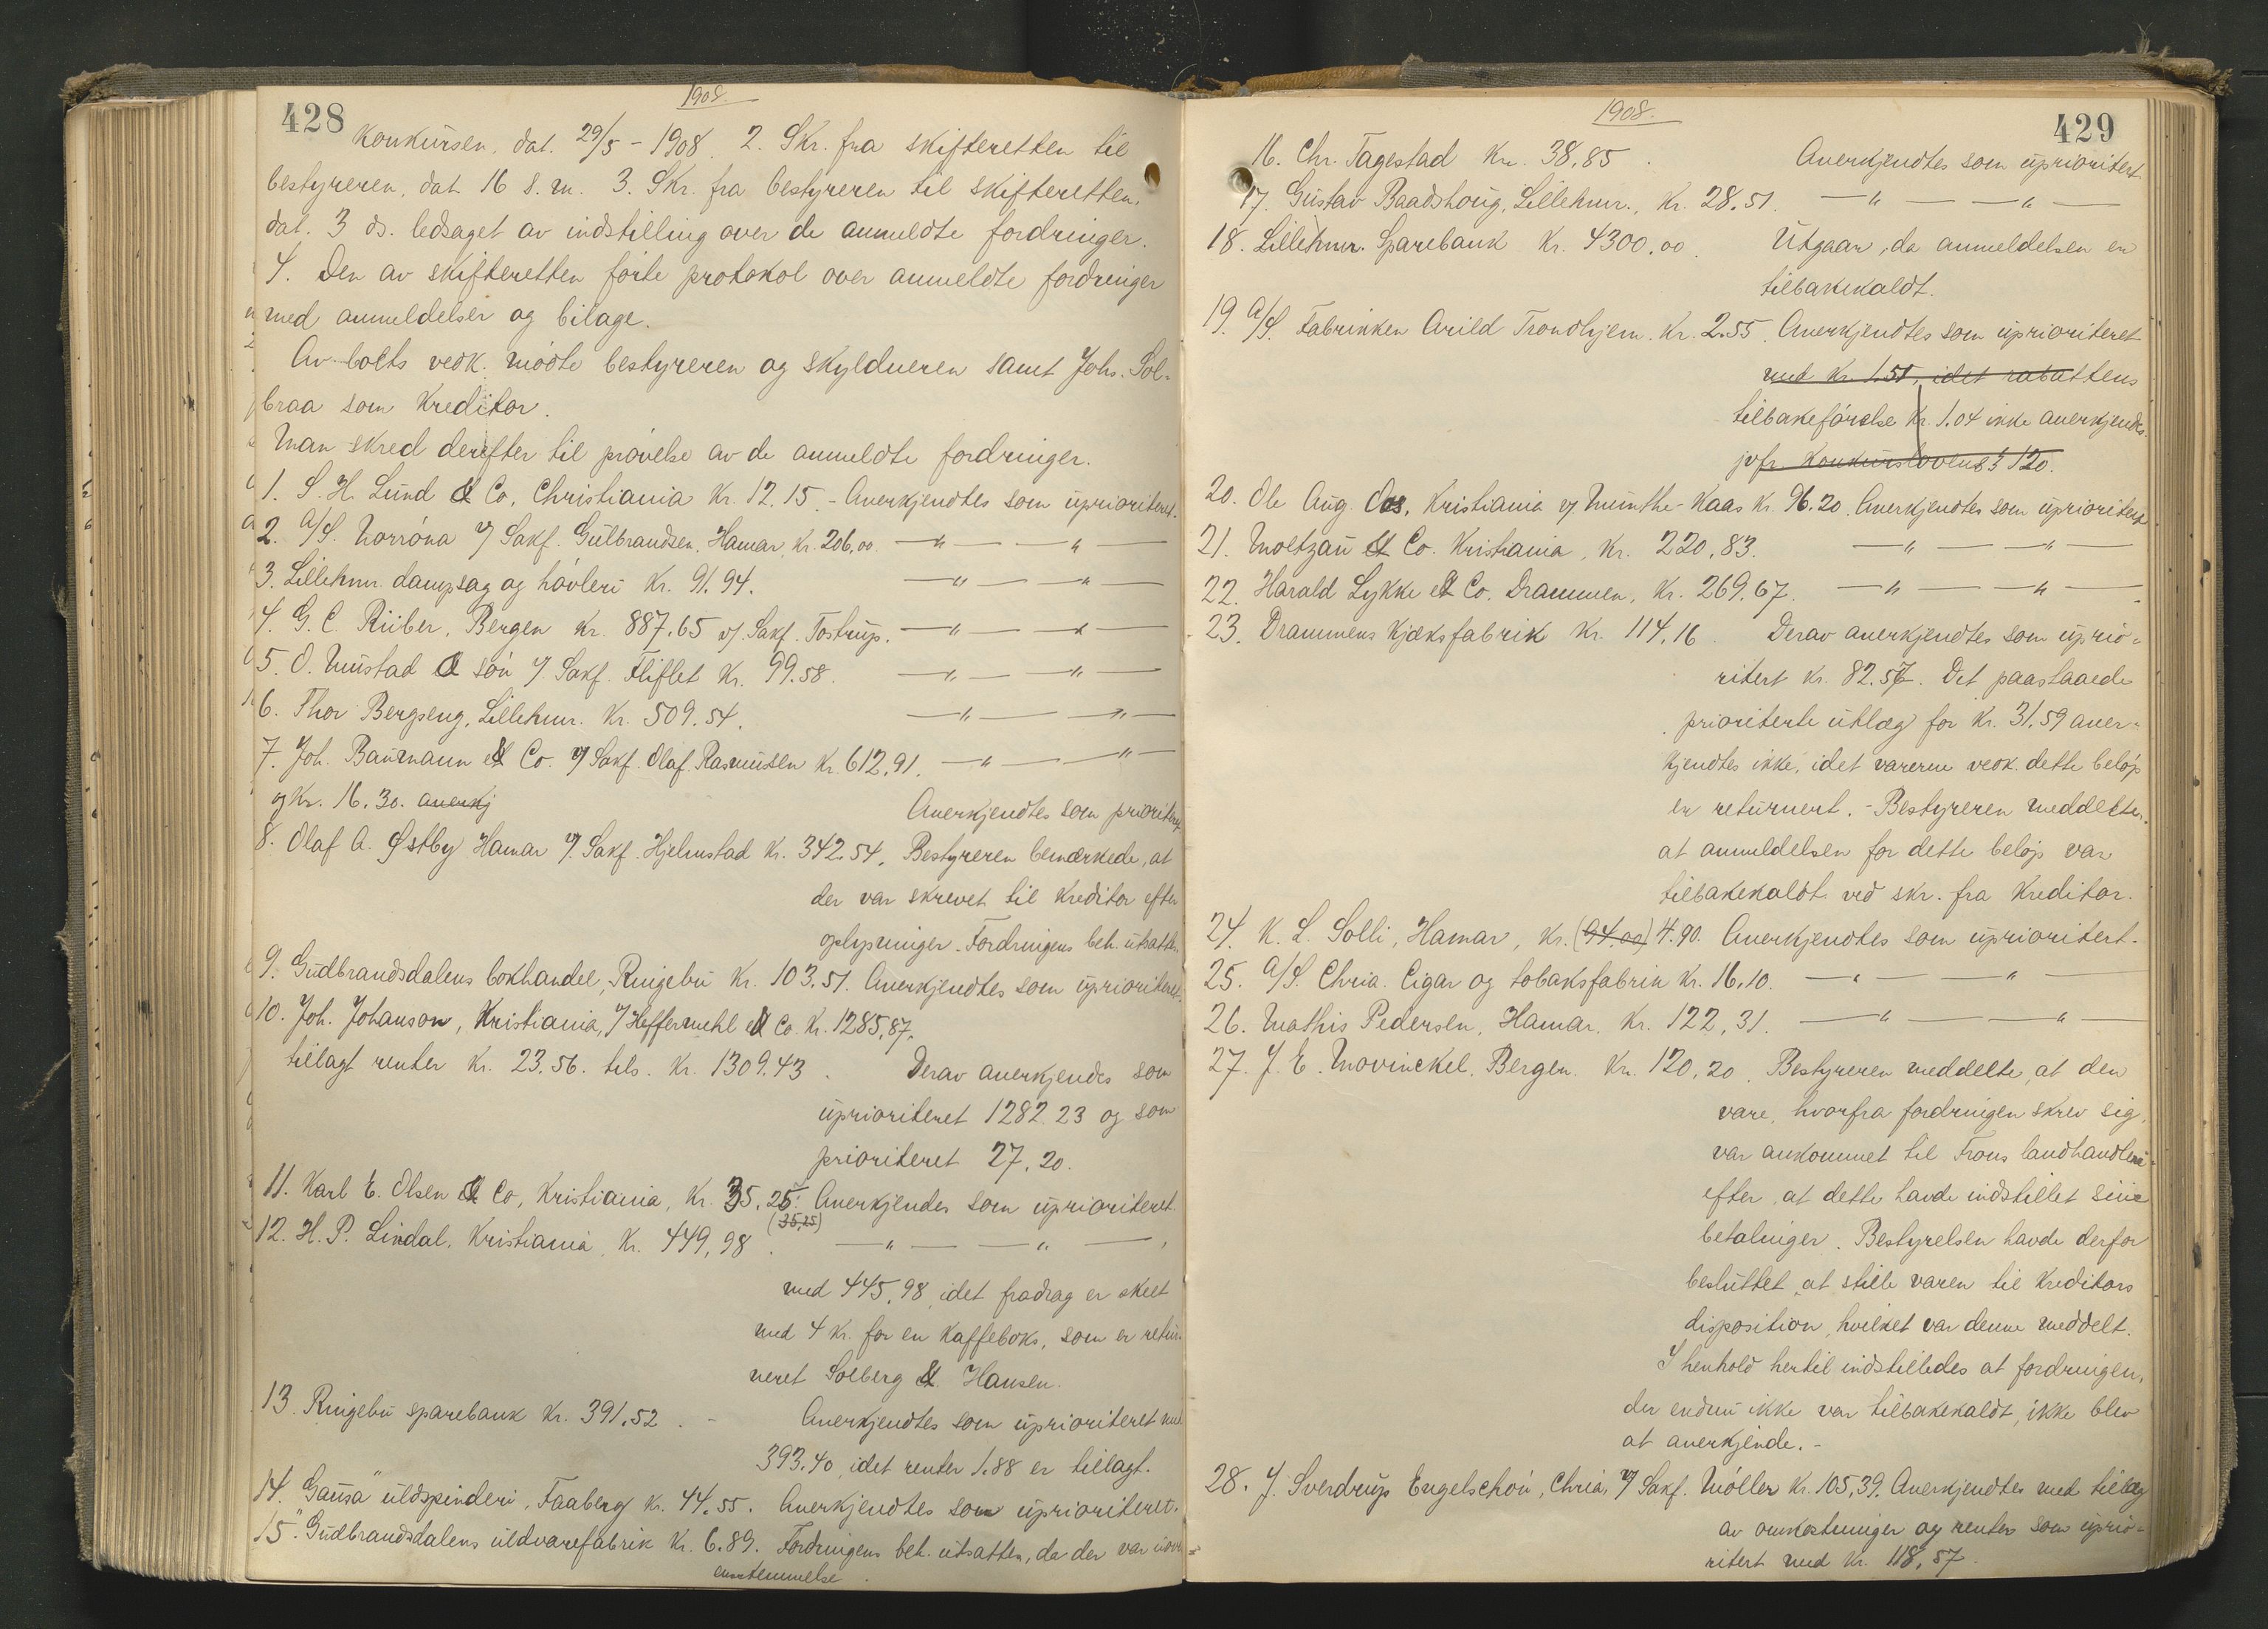 428
1908.
Konkursen, dat. 29/5 - 1908. 2. Skr. fra skifteretten til
bestyreren, dat. 16 s. m. 3. Skr. fra bestyreren til skifteretten,
dat. 3 ds. ledsaget av indstilling over de anmeldte fordringer.
4. Den av skifteretten förte protokol over anmeldte fordringer
med anmeldelser og bilage.
Av boets vedk. mödte bestyreren og skyldneren samt Johs. Sol-
braa som kreditor.
Man skred derefter til prövelse av de anmeldte fordringer.
1. S. H. Lund & Co, Christiania Kr. 12.15. - Anerkjendtes som uprioriteret.
2. A/S. Norröna v/ Sakf. Gulbrandsen, Hamar, Kr. 206,00. — " — — " —
3. Lillehmr. dampsag og hövleri Kr. 91.94. — " — — " —
4. G. C. Rieber, Bergen Kr. 887.65 v/ Sakf. Tostrup. — " — — " —
5. O. Mustad & sön v/ Sakf. Fliflet Kr. 99.58. — " — — " —
6. Thor Bergseng, Lillehmr. Kr. 509.54. — " — — " —
7. Joh. Baumann & Co. v/ Sakf. Olaf Rasmussen Kr. 612,91. — " — — " —
og Kr. 16.30. anerkj Anerkjendtes som prioriteret
8. Olaf A. Østby Hamar v/ Sakf. Hjelmstad Kr. 342.54. Bestyreren bemerkede, at
der var skrevet til kreditor efter
oplysninger. Fordringens beh. utsattes.
9. Gudbrandsdalens bokhandel, Ringebu Kr. 103.51. Anerkjendtes som uprioriteret.
10. Joh. Johanson, Kristiania, v/ Heffermehl & Co. Kr. 1285,87.
tillagt renter Kr. 23.56. tils. Kr. 1309.43. Derav anerkjendes som
uprioriteret 1282.23 og som
prioriteret 27.20.
11. Karl E. Olsen & Co, Kristiania, Kr. 35.25. Anerkjendes som uprioriteret.
(35,25)
12. H. P. Lindal, Kristiania, Kr. 449,98. — " — — " —
med 445,98, idet fradrag er skeet
med 4 Kr. for en kaffeboks, som er retur-
neret Solberg & Hansen.
13. Ringebu sparebank Kr. 391.52. - Anerkjendtes som uprioriteret med
393.40, idet renter 1.88 er tillagt.
14. "Gausa" uldspinderi, Faaberg Kr. 44.55. Anerkjendtes som uprioriteret.
15. Gudbrandsdalens uldvarefabrik Kr. 6.89. Fordringens beh. utsattes, da der var uover-
ensstemmelse.
1908.
429
16. Chr. Tagestad Kr. 38.85. Anerkjendtes som uprioritert.
17. Gustav Baadshoug, Lillehmr., Kr. 28.51. — " — — " —
18. Lillehmr. Sparebank Kr. 4300.00. Utgaar, da anmeldelsen er
tilbakekaldt.
19. A/S. Fabrikken Arild Trondhjem. Kr. 2.55. Anerkjendtes som uprioriteret
med Kr. 1.51, idet rabattens
tilbakeförelse Kr. 1.04 ikke anerkjendes.
jvfr. Konkurslovens § 120.
20. Ole Aug. Aas, Kristiania v/ Munthe-Kaas Kr. 96.20. Anerkjendtes som uprioritert
21. Moltzau & Co. Kristiania, Kr. 220,83. — " — — " —
22. Harald Lykke & Co. Drammen, Kr. 269,67. — " — — " —
23. Drammens kjæksfabrik Kr. 114,16. Derav anerkjendtes som uprio-
ritert kr. 82.57. Det paastaaede
prioriterte utlæg for Kr. 31.59 aner-
kjendtes ikke, idet varerne vedk. dette belöp
er returnert. - Bestyreren meddelte,
at anmeldelsen for dette belöp var
tilbakekaldt ved skr. fra kreditor.
24. K. L. Solli, Hamar, Kr. (94,00) 4.90. Anerkjendtes som uprioritert.
25. A/S. Chria. Cigar og tobaksfabrik Kr. 16,10. — " — — " —
26. Mathis Pedersen, Hamar, Kr. 122,31. — " — — " —
27. J. E. Mowinckel, Bergen. Kr. 120,20. Bestyreren meddelte, at den
vare, hvorfra fordringen skrev sig,
var ankommet til Frons landhandleri
efter at dette havde indstillet sine
betalinger. Bestyrelsen havde derfor
besluttet at stille varen til kreditors
disposition, hvilket var denne meddelt.
I henhold hertil indstilledes at fordringen,
der endnu ikke var tilbakekaldt, ikke blev
at anerkjende. -
28. J. Sverdrup Engelschön, Chria, v/ Sakf. Möller Kr. 105,39. Anerkjendtes med tillæg
av omkostninger og renter som uprio-
ritert med Kr. 118,57.